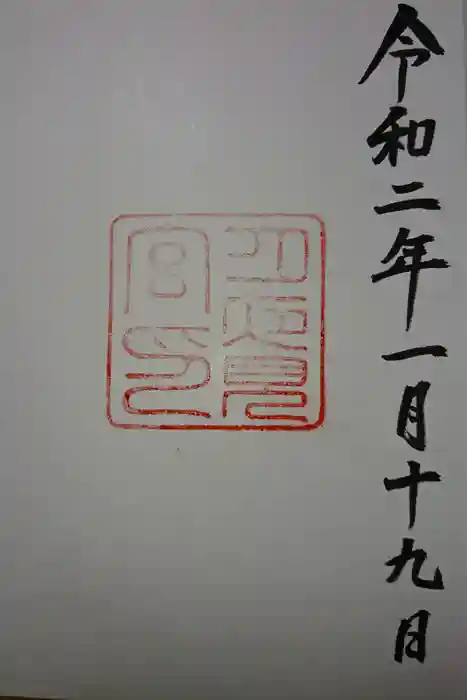 令和二年一月十九日
宮印